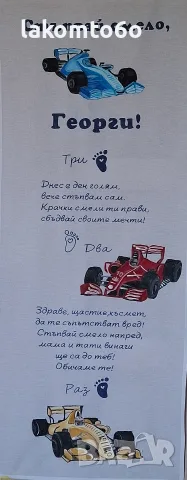 lakomto60
смело,
Георги!
Три
Днес а ден голям,
вече стъпвам сам.
Крачки смели ти прави,
сбъдвай своите мечти!
Два
Здраве, щастие, късмет,
да те съпътстват вред!
Стъпвай смело напред,
мама и тати винаги
ще са до теб!
Обичаме те!
Раз
bazar